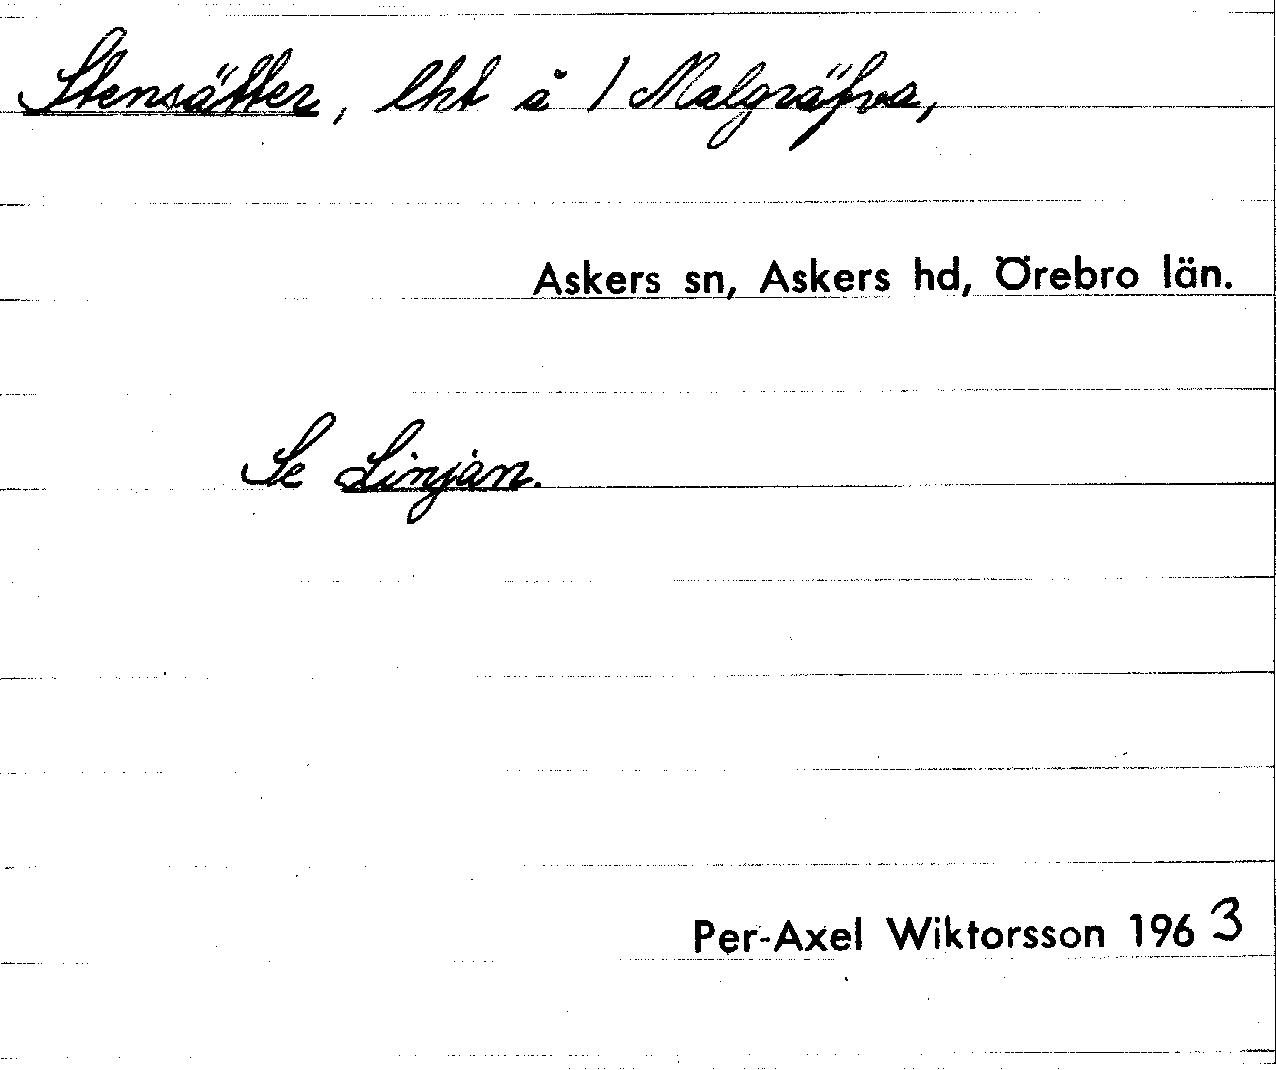 Stensätter, lht å 1 Malgräfva,
Askers sn, Askers hd, Örebro län.
Se Linjan.
Per-Axel Wiktorsson 1963